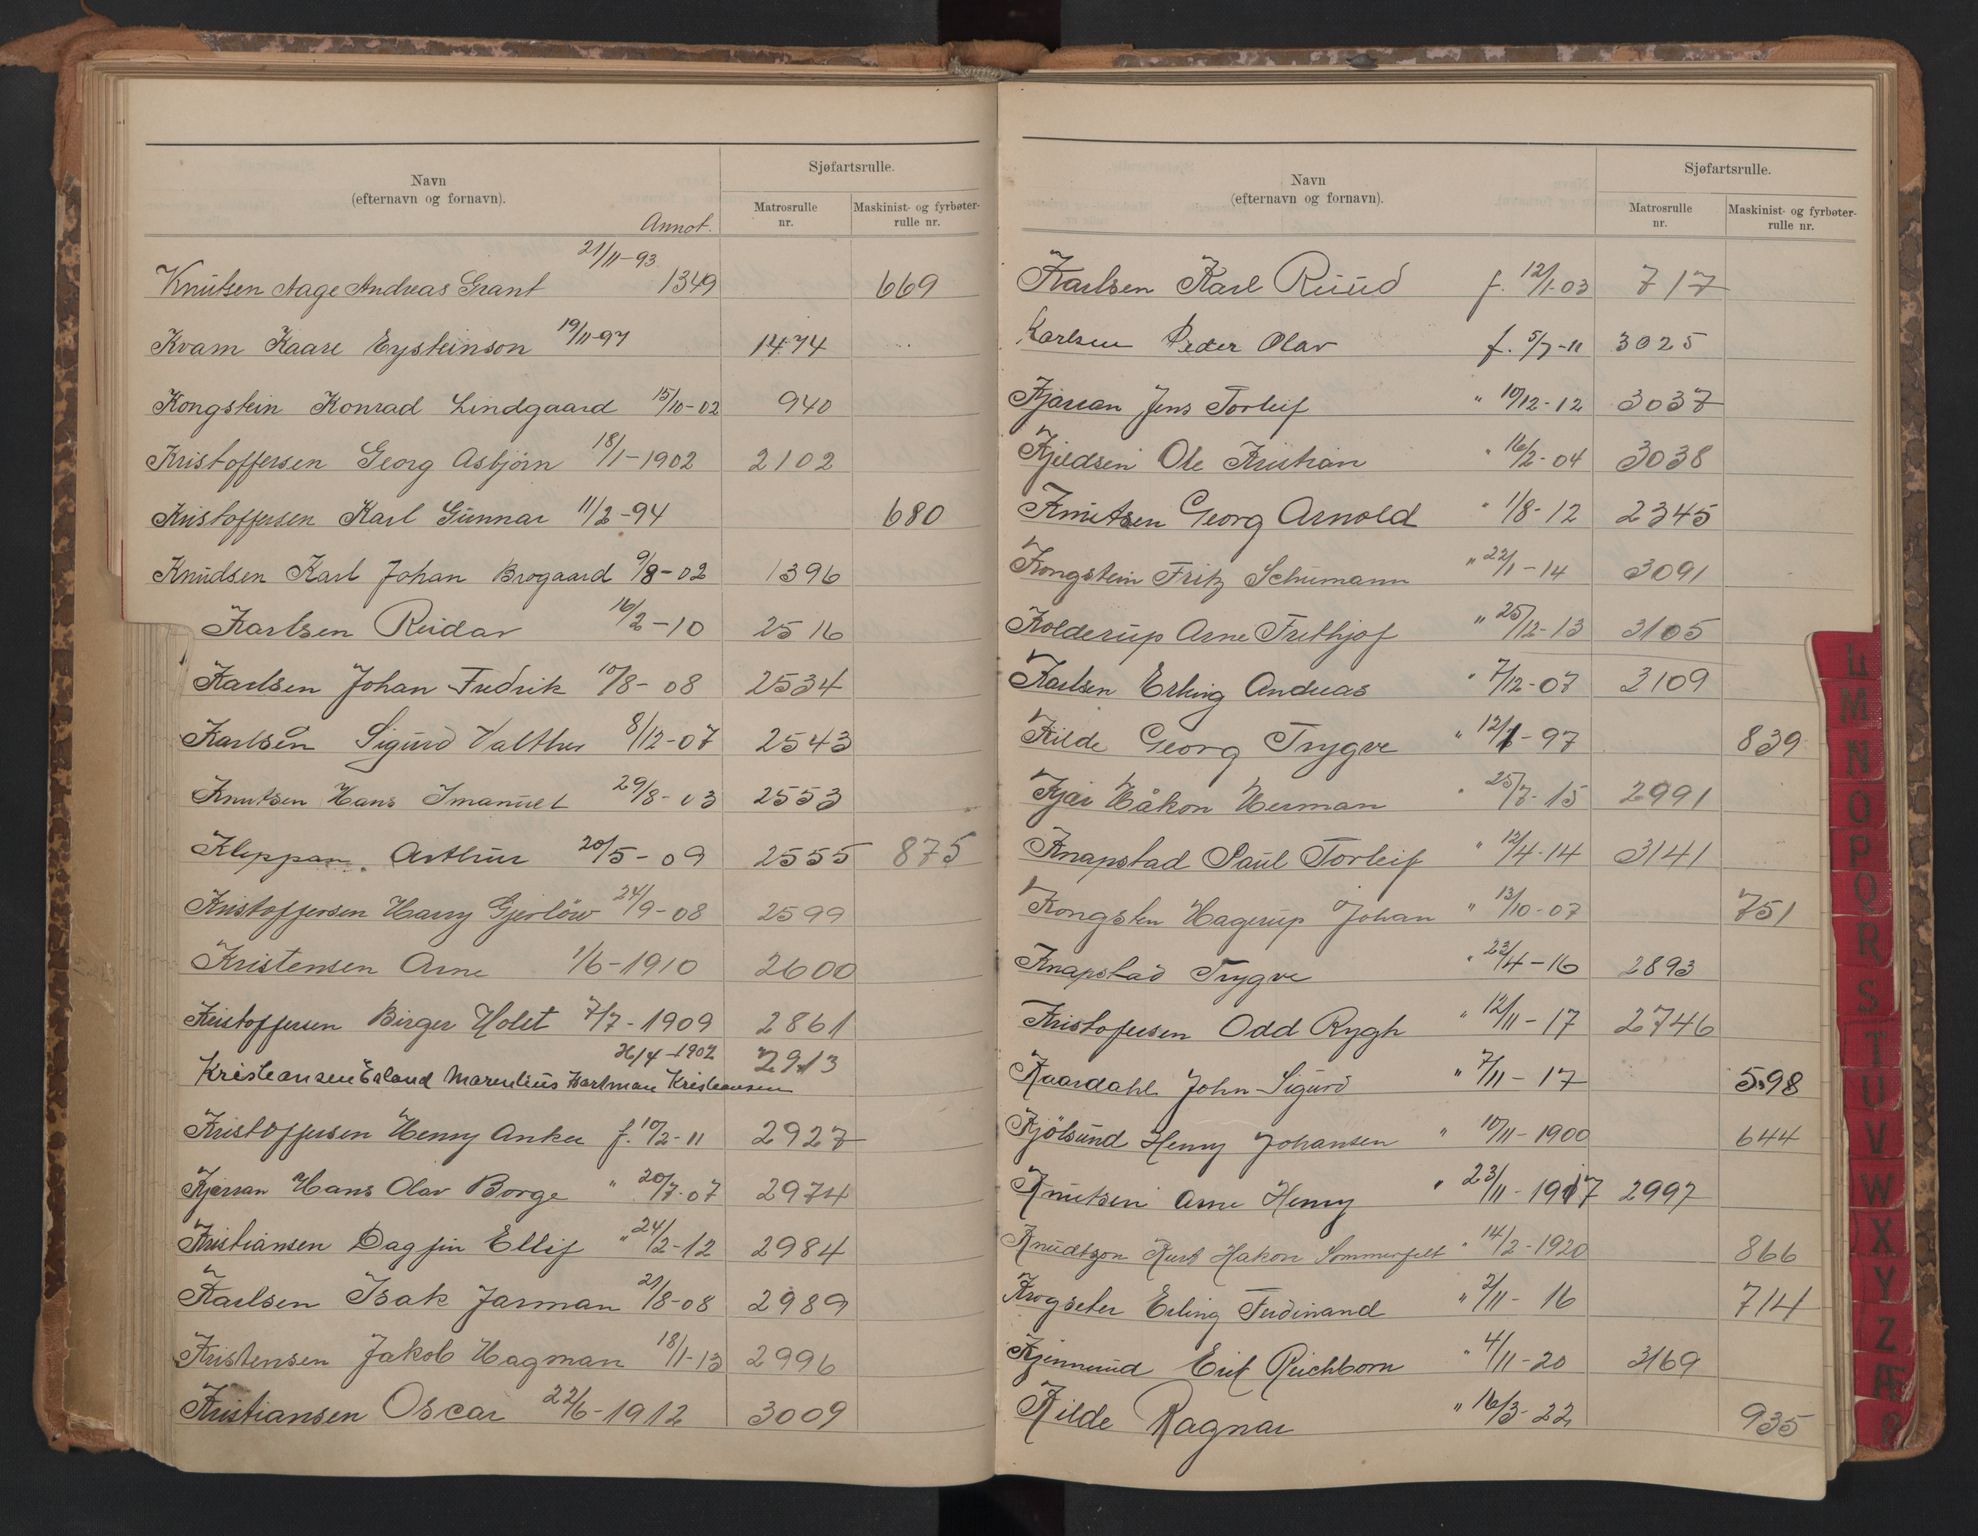 Navn
(efternavn og fornavn).
Sjøfartsrulle.
Matrosrulle
nr.
Maskinist- og fyrbøter-
rulle nr.
Annot.
21/11-93
Knutsen Aage Andreas Grant 1349 669
Kvam Kaare Eysteinson 19/11-97 1474
Kongstein Konrad Lindgaard 15/10-02 940
Kristoffersen Georg Asbjørn 18/1-1902 2102
Kristoffersen Karl Gunnar 11/2-94 680
Knudsen Karl Johan Brogaard 9/8-02 1396
Karlsen Reidar 16/2-10 2516
Karlsen Johan Fredrik 10/8-08 2534
Karlsen Sigurd Valther 8/12-07 2543
Knutsen Hans Imanuel 29/8-03 2553
Kleppan. Arthur 20/5-09 2555 875
Kristoffersen Harry Gjerløw 24/9-08 2599
Kristensen Arne 1/6-1910 2600
Kristoffersen Birger Holst 7/7-1909 2861
26/4-1902 2913
Kristiansen Erland Marenlius Hartman Kristiansen
Kristoffersen Henry Anker f. 10/2-11 2927
Kjærran Hans Olav Borge " 20/7-07 2974
Kristiansen Dagfin Ellif " 24/2-12 2984
Karlsen Isak Jarman 21/8-08 2989
Kristensen Jakob Hagman 18/1-13 2996
Kristiansen Oscar 22/6-1912 3009
Navn
(efternavn og fornavn).
Sjøfartsrulle.
Matrosrulle
nr.
Maskinist- og fyrbøter-
rulle nr.
Karlsen Karl Ruud f. 12/1-03 717
Karlsen Peder Olav f. 5/7-11 3025
Kjærran Jens Torleif " 10/12-12 3037
Kjeldsen Ole Kristian " 16/2-04 3038
Knutsen Georg Arnold " 1/8-12 2345
Kongstein Fritz Schumann " 22/1-14 3091
Kolderup Arne Frithjof " 25/12-13 3105
Karlsen Erling Andreas " 7/12-07 3109
Kilde Georg Trygve " 12/1-97 839
Kjær Håkon Herman " 25/7-15 2991
Knapstad Paul Torleif " 12/4-14 3141
Kongsten Hagerup Johan " 13/10-07 751
Knapstad Trygve " 23/4-16 2893
Kristofersen Odd Rygh " 12/11-17 2746
Kaardahl John Sigurd " 7/11-17 598
Kjølsund Henry Johansen " 10/11-1900 644
Knutsen Arne Henry " 23/11-1917 2997
Knudtzon Kurt Hakon Sommerfelt " 14/2-1920 866
Krogseter Erling Ferdinand " 2/11-16 714
Kjennerud Erik Reichborn " 4/11-20 3169
Kilde Ragnar " 16/3-22 935
L
M
N
O
P
Q
R
S
T
U
V
W
X
Y
Z
Æ